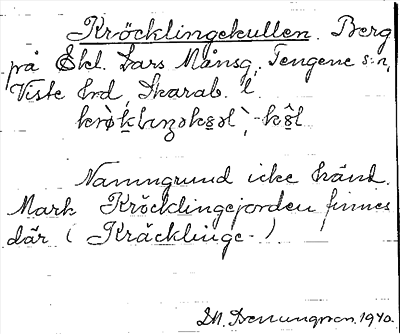 Kröcklingekullen. Berg
på Ekl. Lars Månsg, Tengene s:n,
Viste hd, Skarab. l.
krö̀k̬lıŋəks̬əl`, -kŝ̬l
Namngrund icke känd.
Mark Kröcklingejorden finnes
där (Kräcklinge-).
1940.